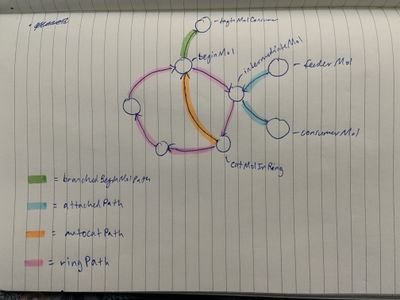 beginMolConsumer
beginMol
intermediateMol
feederMol
consumerMol
catMolInRing
= branchedBeginMolPath
= attachedPath
= autocatPath
= ringPath